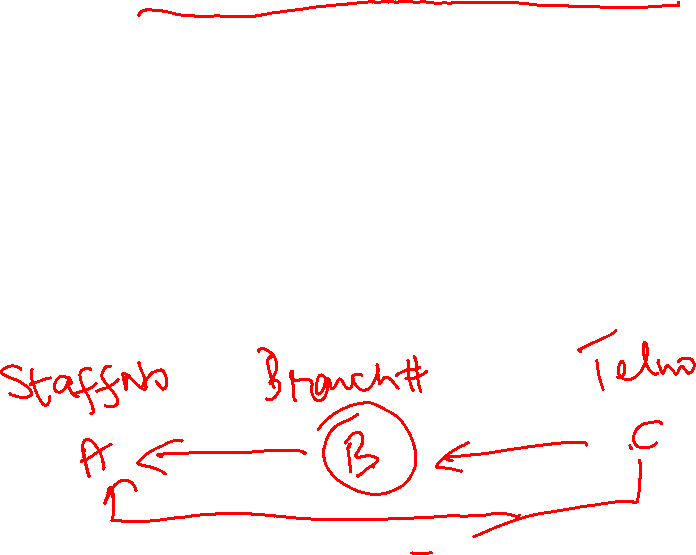 StaffNo Branch# Telno
A B C